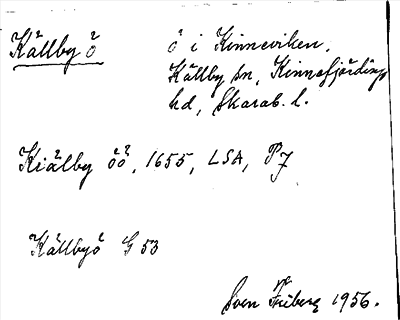 Källby ö
ö i Kinneviken,
Källby sn, Kinnefjärdings
hd, Skarab. l.
Kiälby öö, 1655, LSA, P7
Källbyö G 53
Sven Friberg 1956.